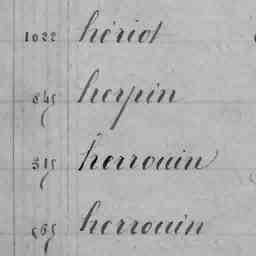 1022 hériot
845 herpin
315 herrouin
565 herrouin